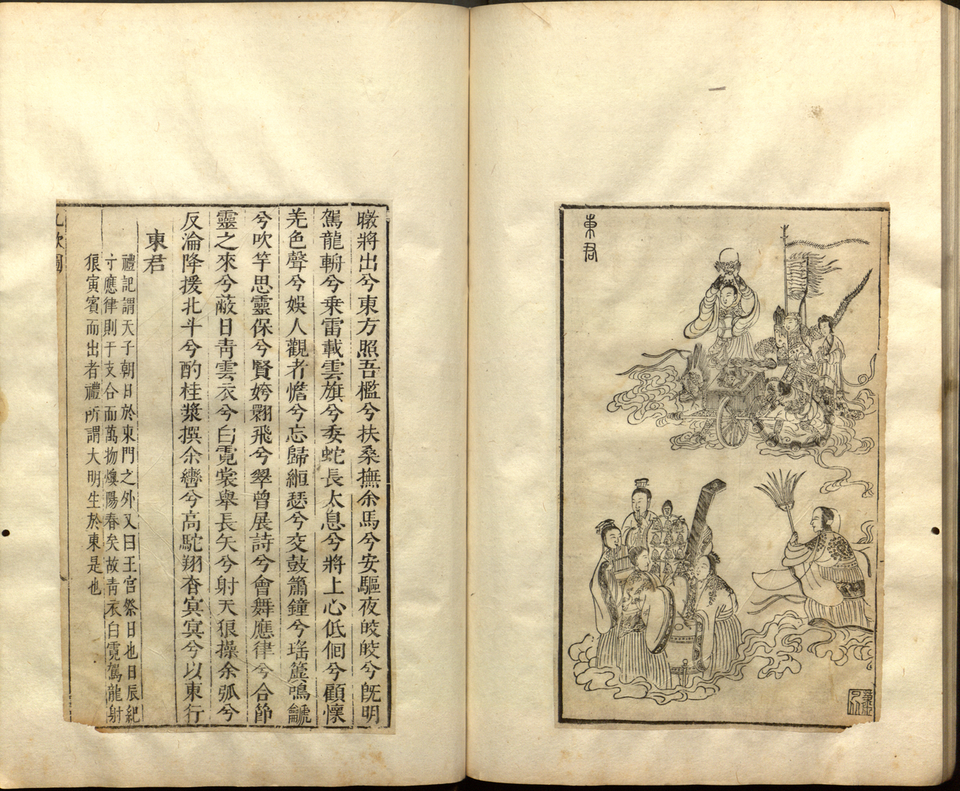 東君
暾將出兮東方照吾檻兮扶桑撫余馬兮安驅夜皎皎兮旣明
駕龍輈兮乘雷載雲旗兮委蛇長太息兮將上心低佪兮顧懷
羌色聲兮娛人觀者憺兮忘歸縆瑟兮交鼓簫鐘兮瑤簴鳴䶵
兮吹竽思靈保兮賢姱翾飛兮翠曾展詩兮會舞應律兮合節
靈之來兮蔽日靑雲衣兮白霓裳舉長矢兮射天狼操余弧兮
反淪降援北斗兮酌桂漿撰余轡兮高駝翔杳冥冥兮以東行
東君
禮記謂天子朝日於東門之外又曰王宮祭日也日辰紀
寸應律則干支合而萬物燠陽春矣故靑衣白霓駕龍射
狼寅賓而出者禮所謂大明生於東是也